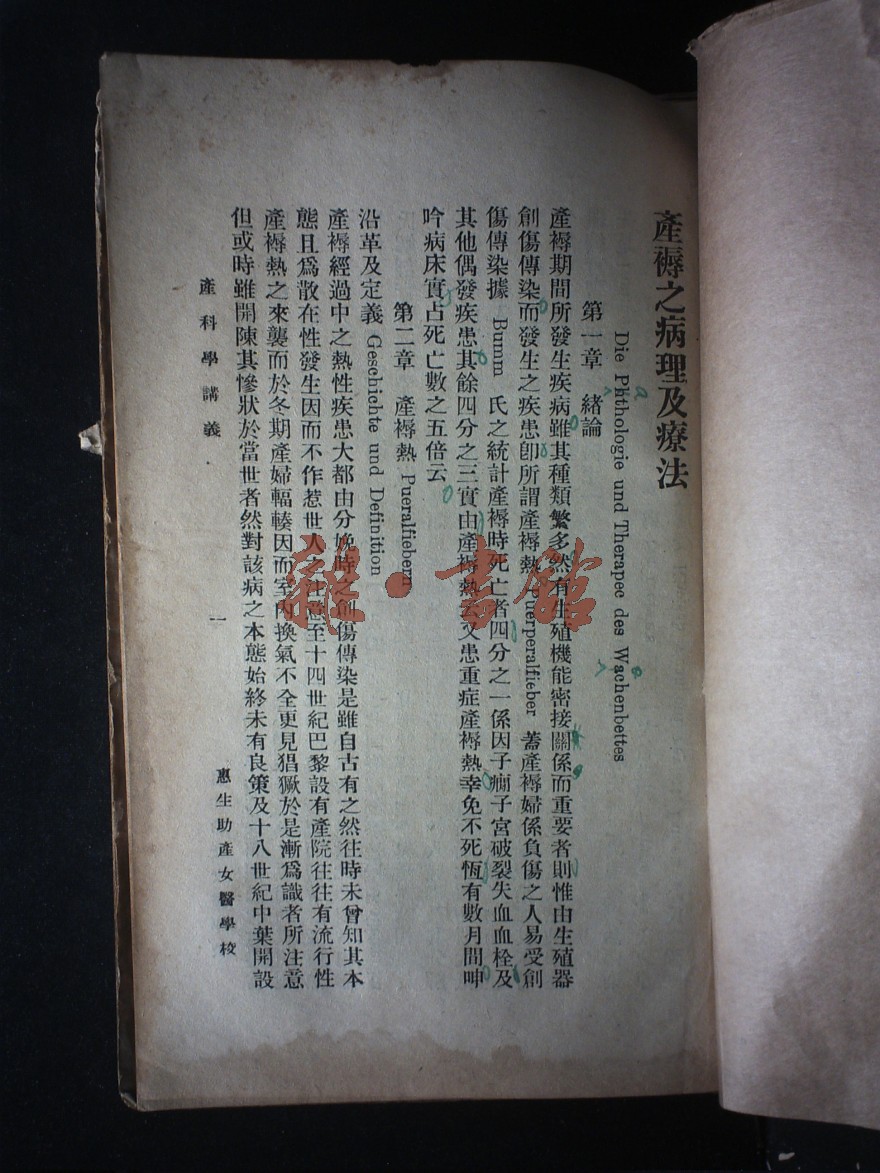 產褥之病理及療法
Die Pkthologie und Therapee des Wachenbettes
第一章 緒論
產褥期間所發生疾病雖其種類繁多然有生殖機能密接關係而重要者則惟由生殖器
創傷傳染而發生之疾患卽所謂產褥熱 Puerperalfieber 蓋產褥婦係負傷之人易受創
傷傳染據 Bumm 氏之統計產褥時死亡者四分之一係因子癎子宮破裂失血血栓及
其他偶發疾患其餘四分之三實由產褥熱云又患重症產褥熱幸免不死恆有數月間呻
吟病床實占死亡數之五倍云
第二章 產褥熱 Pueralfiebern
沿革及定義 Geschichte und Definition
產褥經過中之熱性疾患大都由分娩時之創傷傳染是雖自古有之然往時未曾知其本
態且爲散在性發生因而不作惹世人之注意至十四世紀巴黎設有產院往往有流行性
產褥熱之來襲而於冬期產婦輻輳因而室內換氣不全更見猖獗於是漸爲識者所注意
但或時雖開陳其慘狀於當世者然對該病之本態始終未有良策及十八世紀中葉開設
產科學講義
一
惠生助產女醫學校
雜·書館